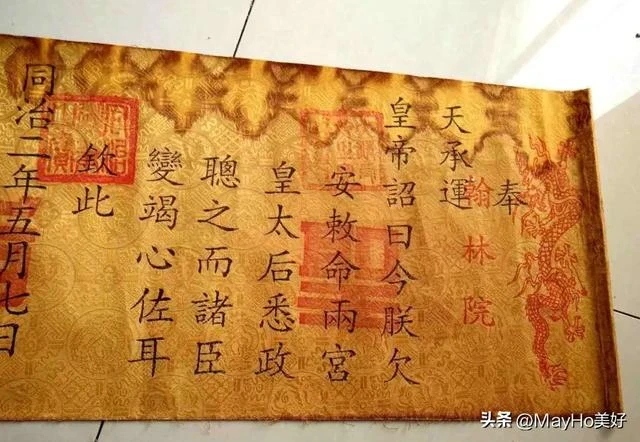 奉
翰林院
天承運
皇帝詔曰今朕欠
安敕命兩宮
皇太后悉政
聰之而諸臣
變竭心佐耳
欽此
同治二年五月七日
头条 @MayHo美好